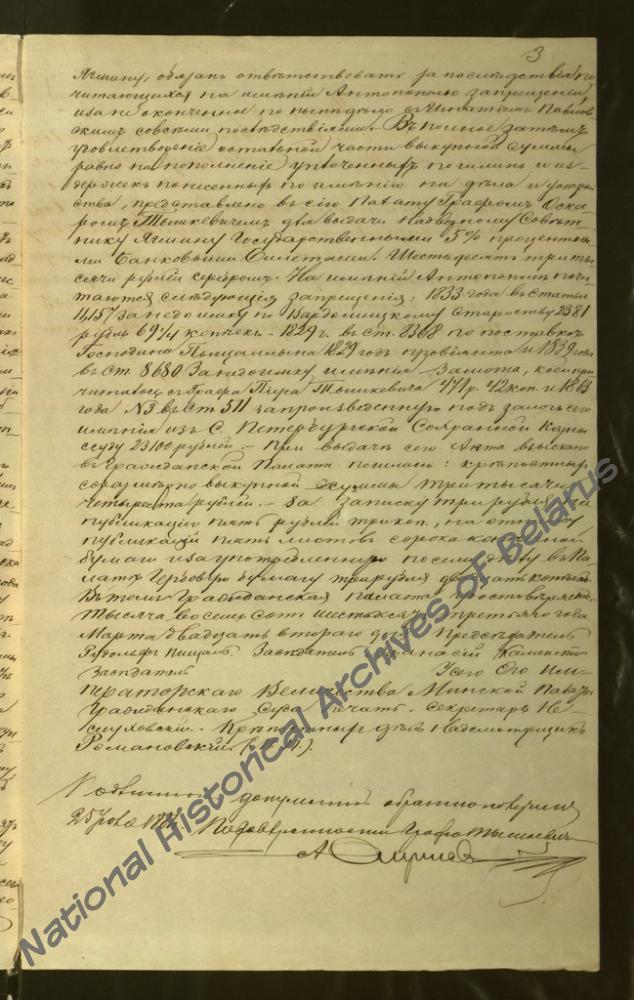 3
Ягмину, обязан ответствовать за последствия по
читающихся на имении Антополью запрещений,
и за не оконченное по ныне дело с Игнатием Павлов
ским со всеми последствиями. В полное затем
удовлетворение остальной части выкупной суммы
равно на пополнение уплоченных пошлин и из-
держек понесенных по имению на дела и устрой
ства, представлено в сию Палату Графом Оска-
ром Тышкевичем для выдачи Надворному Совет-
нику Ягмину Государственными 5% процентны-
ми Банковыми Билетами. Шестьдесят три ты-
сячи рублей серебром. На имении Антополи почи-
таются следующия запрещения: 1833 года в статьи
11,157 за недоимку по Бардомицкому Староству 2381
рубль 69 1/4 копеек - 1829 г. в ст. 8368 по поставке
Господина 1829 год провианта и 1839 года
в ст. 8680 За недоимку имения Замоша, коей при
читалось с Графа Пиуса Тышкевича 471 р. 42 коп. и 1863
года N3 в ст 511 запроизведенную под залог сего
имения из С. Петербургской Сохранной Казны
ссуду 23100 рублей. - При выдаче сего Акта взыскано
в Гражданской Палате пошлин: крепостных
соразмерно выкупной суммы три тысячи
четыреста рублей. - За записку три рубля, за
публикацию пять рублей три коп., на
публикаций пять листов сорока копеечной
бумаги и за употребленную по сему делу в Па-
лате Гербовую бумагу три рубля двадцать копеек.
В том Гражданская Палата удостоверяет.
Тысяча восемь сот шестьдесят третьяго года
Марта двадцать втораго дня. Председатель
Рудольф Пищало. Заседатель Афанасий
Заседатель У сего Его Им-
ператорского Величества Минской Палаты
Гражданскаго Суда печать. Секретарь Не-
слуховский. Крепостных дел Надсмотрщик
Романовский. (М. П.)
документ обратно получил
25
По доверенности Графа Тышкевича
А
National Historical Archives of Belarus